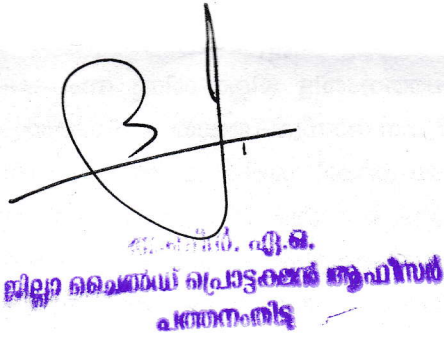 ഏ.ഒ.
ജില്ലാ ചൈൽഡ് പ്രൊട്ടക്ഷൻ ആഫീസർ
പത്തനംതിട്ട